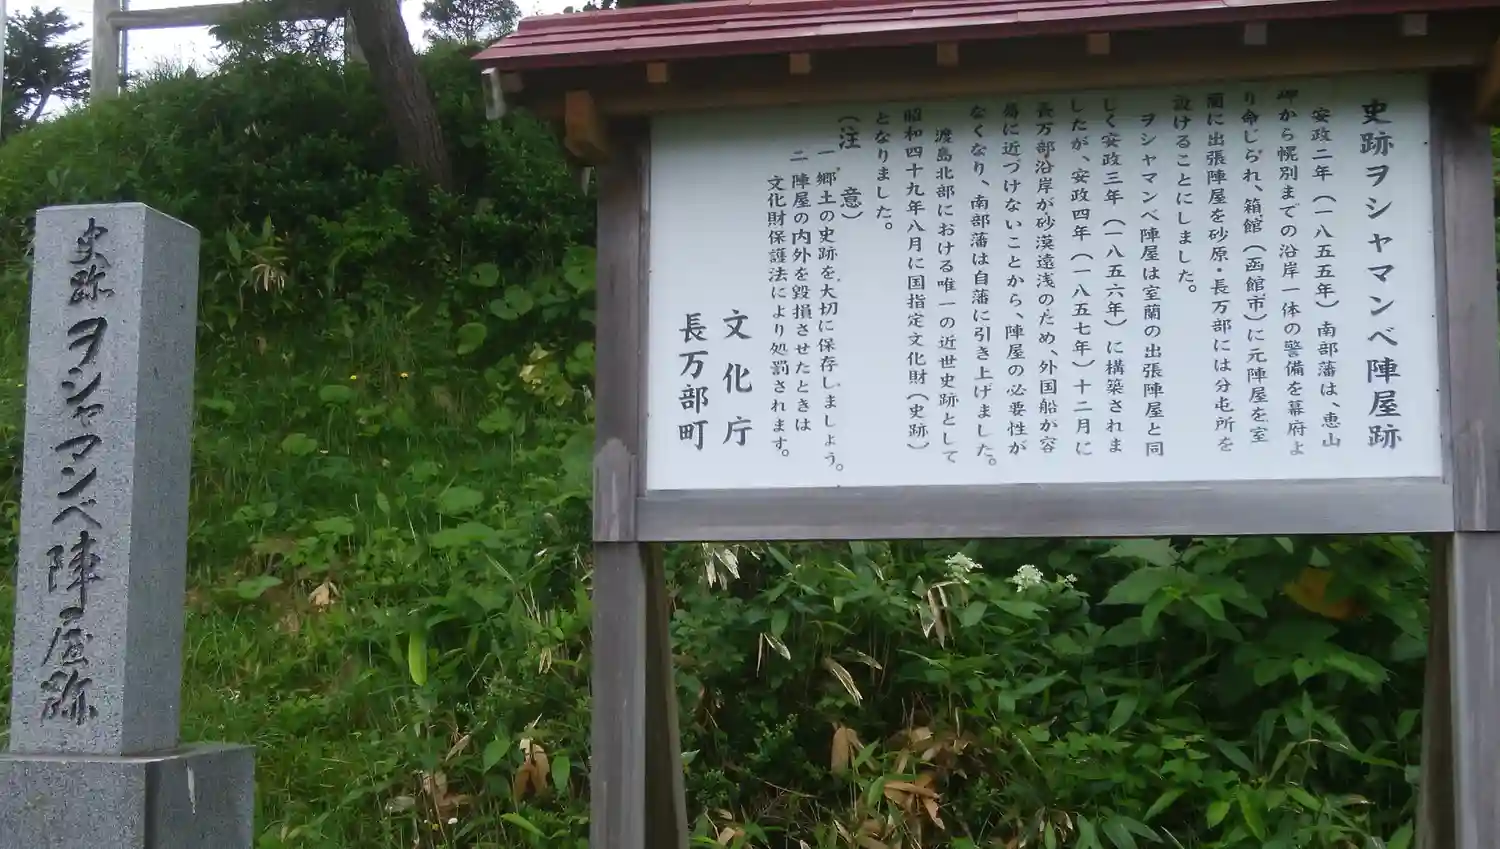 史跡ヲシャマンベ陣屋跡
安政二年（一八五五年）南部藩は、恵山
岬から幌別までの沿岸一体の警備を幕府よ
り命じられ、箱館（函館市）に元陣屋を室
蘭に出張陣屋を砂原・長万部には分屯所を
設けることにしました。
ヲシャマンベ陣屋は室蘭の出張陣屋と同
じく安政三年（一八五六年）に構築されま
したが、安政四年（一八五七年）十二月に
長万部沿岸が砂漠遠浅のため、外国船が容
易に近づけないことから、陣屋の必要性が
なくなり、南部藩は自藩に引き上げました。
渡島北部における唯一の近世史跡として
昭和四十九年八月に国指定文化財（史跡）
となりました。
（注　意）
一、郷土の史跡を大切に保存しましょう。
二　陣屋の内外を毀損させたときは
文化財保護法により処罰されます。
文化庁
長万部町
史跡ヲシャマンベ陣屋跡